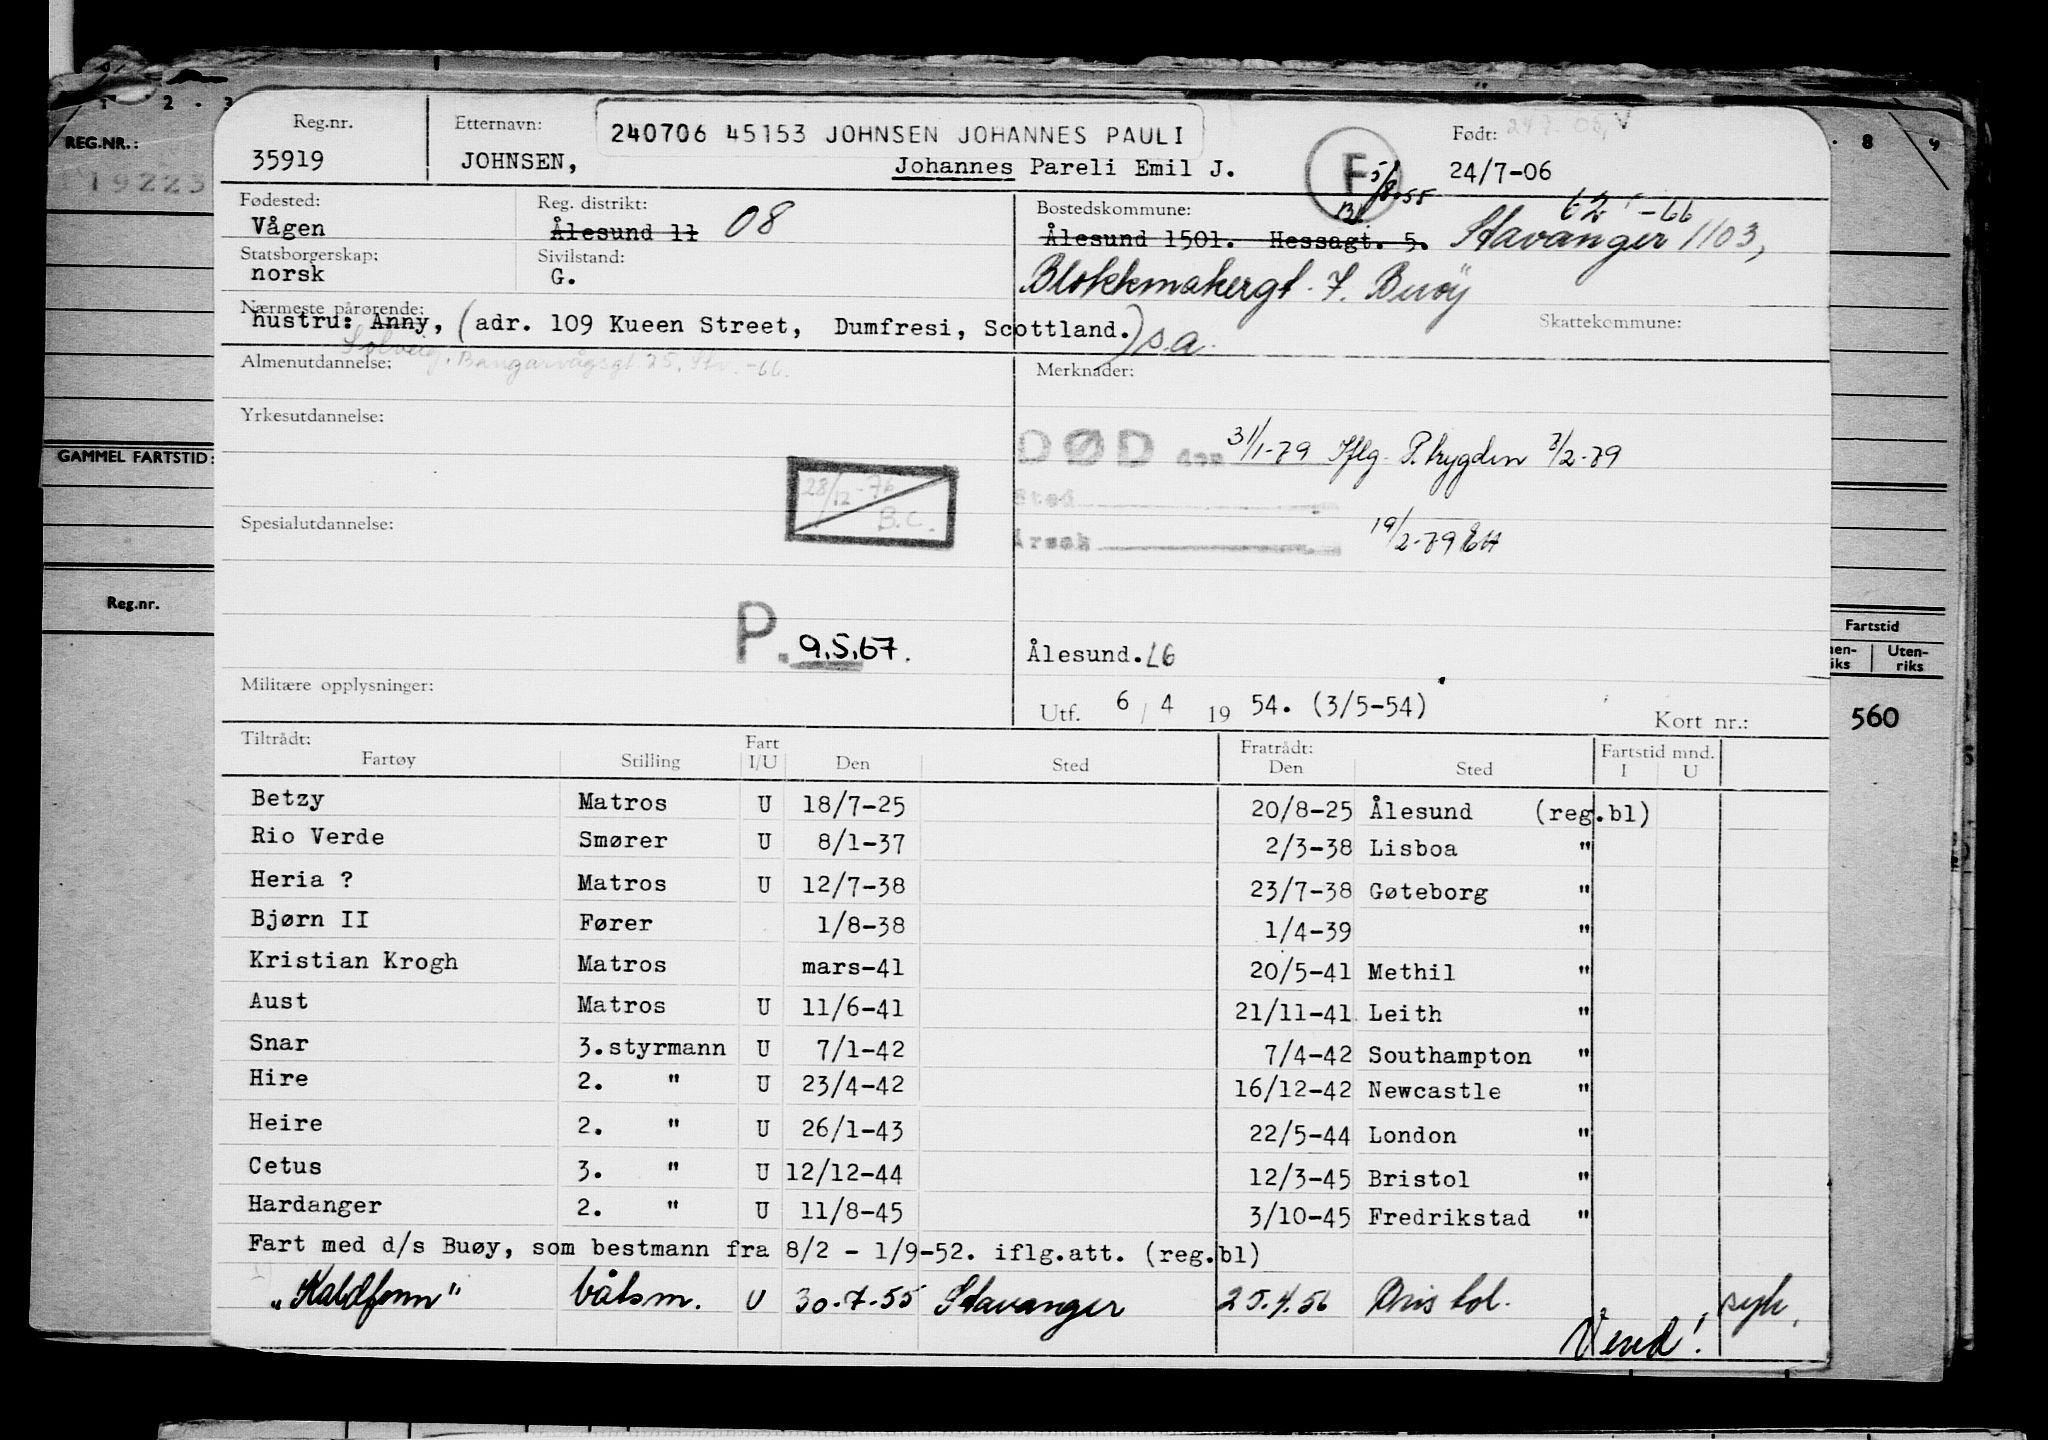 1 2 . 3
REG.NR.:
119223
GAMMEL FARTSTID:
Reg.nr.
Reg.nr.
35919
Etternavn:
JOHNSEN,
240706 45153 JOHNSEN JOHANNES PAULI
Johannes Pareli Emil J.
F
5/8-55
Født:
24/7-06
Fødested:
Vågen
Reg. distrikt:
Ålesund 11 08
Bostedskommune:
-66
Ålesund 1501. Hessagt. 5. Stavanger 1103,
Statsborgerskap:
norsk
Sivilstand:
G.
Blokkmakergt. 7. Buøy
Nærmeste pårørende:
hustru: Anny, (adr. 109 Kueen Street, Dumfresi, Scottland.) s.a.
Skattekommune:
Solveig, Bangarvågsgt 25, Stv. -66.
Almenutdannelse:
Merknader:
Yrkesutdannelse:
DØD den 31/1-79 Iflg. P.trygden 7/2-79
28/12-76
B.C.
Sted
Spesialutdannelse:
Årsak
19/2-79 EH
P. 9.5.67.
Ålesund. LG
Militære opplysninger:
Utf. 6 / 4 19 54. (3/5-54)
Kort nr.:
Tiltrådt:
Fartøy Stilling Fart I/U Den Sted Fratrådt: Den Sted Fartstid mnd. I U
Betzy Matros U 18/7-25 20/8-25 Ålesund (reg.bl)
Rio Verde Smører U 8/1-37 2/3-38 Lisboa "
Heria ? Matros U 12/7-38 23/7-38 Gøteborg "
Bjørn II Fører 1/8-38 1/4-39 "
Kristian Krogh Matros mars-41 20/5-41 Methil "
Aust Matros U 11/6-41 21/11-41 Leith "
Snar 3.styrmann U 7/1-42 7/4-42 Southampton "
Hire 2. " U 23/4-42 16/12-42 Newcastle "
Heire 2. " U 26/1-43 22/5-44 London "
Cetus 3. " U 12/12-44 12/3-45 Bristol "
Hardanger 2. " U 11/8-45 3/10-45 Fredrikstad "
Fart med d/s Buøy, som bestmann fra 8/2 - 1/9-52. iflg.att. (reg.bl)
"Kaldfonn" båtsm. U 30-7-55 Stavanger 25.4.56 Bristol. syk.
Vend!
8 9
Fartstid
Uten-
riks
560